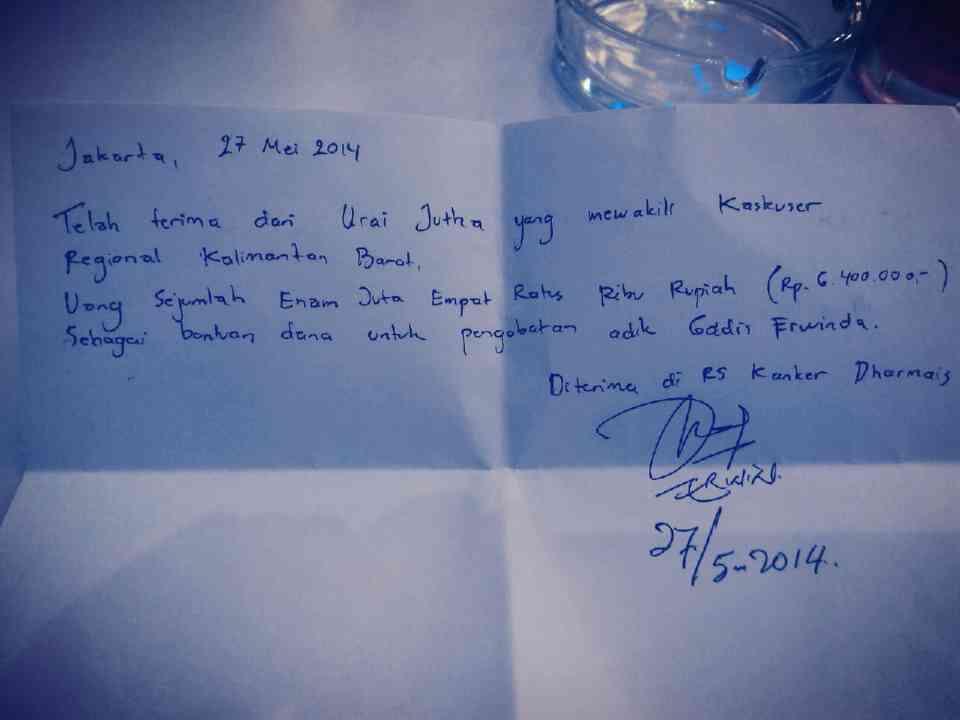 Jakarta, 27 Mei 2014
Telah terima dari Urai Jutha yang mewakili Kaskuser
Regional Kalimantan Barat,
Uang Sejumlah Enam Juta Empat Ratus Ribu Rupiah (Rp. 6.400.000,-)
Sebagai bantuan dana untuk pengobatan adik Gadis Erwinda.
Diterima di RS Kanker Dharmais
27/5-2014.